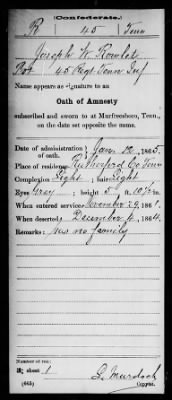 (Confederate.)
R 45 Tenn
Joseph W. Rowlett
Pvt 45 Regt Tenn Inf
Name appears as signature to an
Oath of Amnesty
subscribed and sworn to at Murfreesboro, Tenn.,
on the date set opposite the name.
Date of administration of oath, Jan 12, 1865.
Place of residence Rutherford Co Tenn
Complexion Light, hair Light
Eyes Gray; height 5 ft. 10½ in.
When entered service November 29, 1861.
When deserted December 4, 1864.
Remarks: has no family
Number of roll:
sheet 1
(645) L. Murdoch
Copyist.